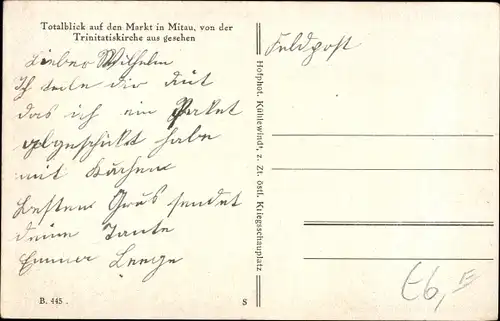 Totalblick auf den Markt in Mitau, von der
Trinitatiskirche aus gesehen
Lieber Wilhelm
Ich teile dir mit
das ich ein Packet
abgeschickt habe
mit Kuchen
besten Grus sendet
deine Tante
Emma
Feldpost
Hofphot. Kühlewindt, z. Zt. östl. Kriegsschauplatz
B. 445.
S